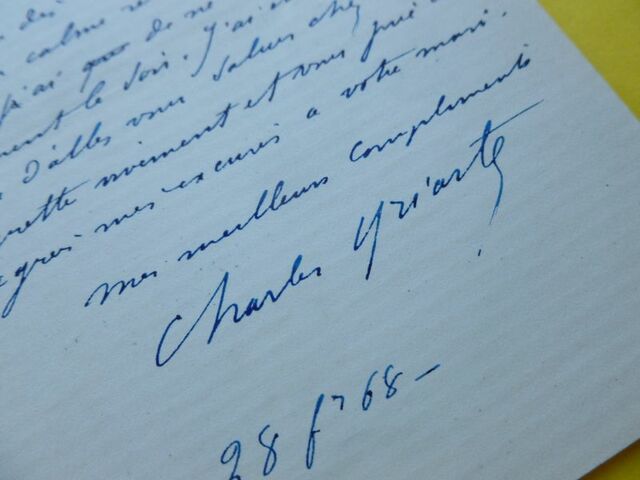 calme
j'ai que de ne
le soir. J'ai
d'aller vous saluer chez
vivement et vous prie
mes excuses à votre mari.
mes meilleurs compliments
Charles Yriarte
28 fr 68 –